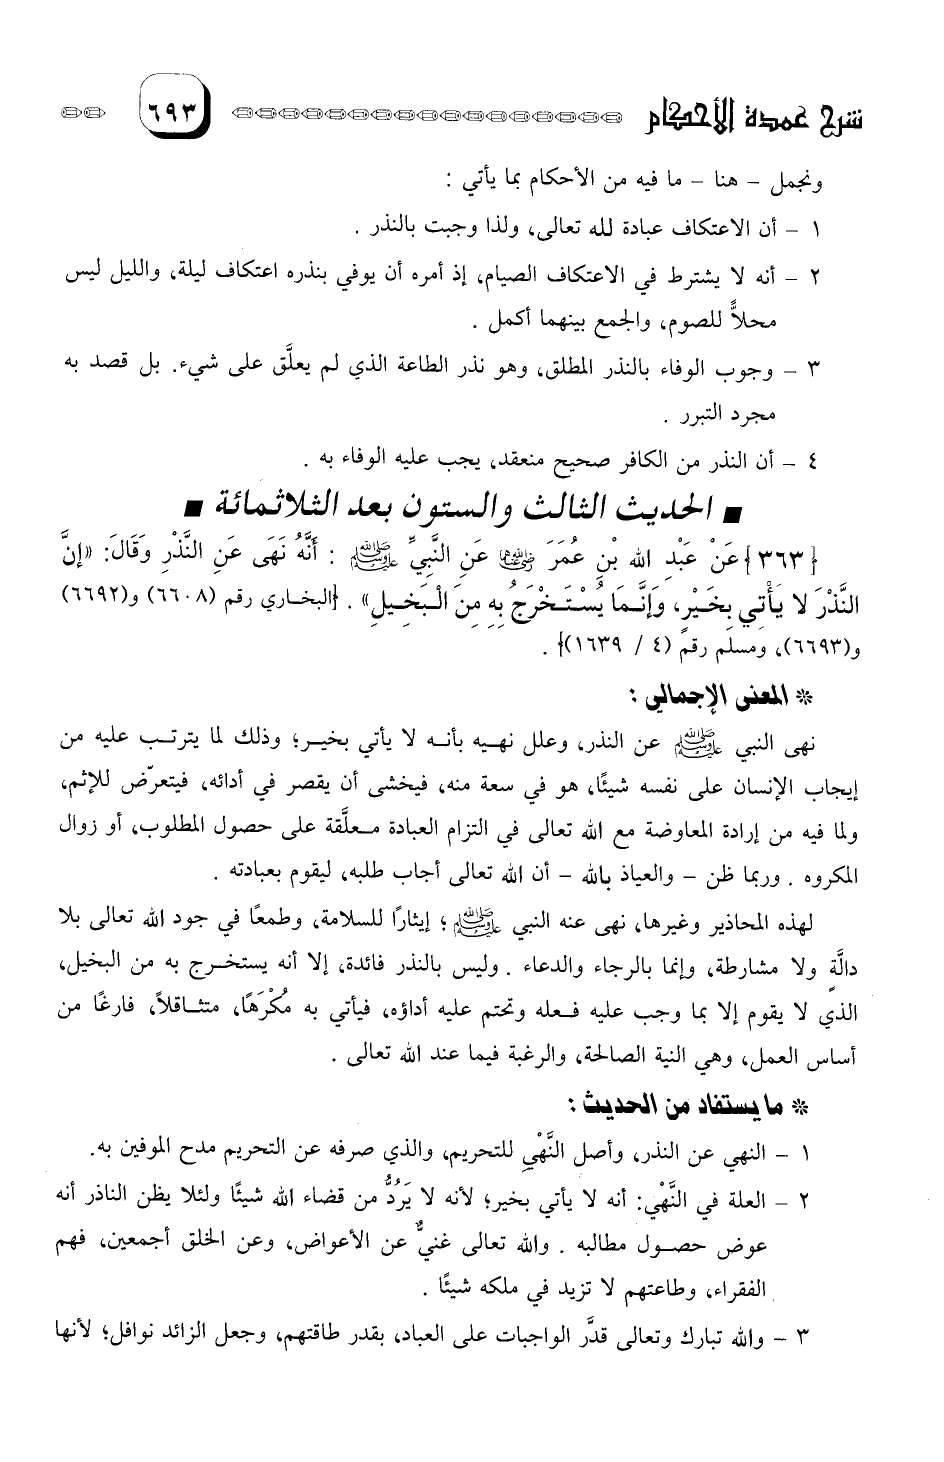 شرح عمدة الأحكام ٦٩٣
ونجمل – هنا – ما فيه من الأحكام بما يأتي :
١ – أن الاعتكاف عبادة لله تعالى، ولذا وجبت بالنذر .
٢ – أنه لا يشترط في الاعتكاف الصيام، إذ أمره أن يوفي بنذره اعتكاف ليلة، والليل ليس
محلاًّ للصوم، والجمع بينهما أكمل .
٣ – وجوب الوفاء بالنذر المطلق، وهو نذر الطاعة الذي لم يعلَّق على شيء. بل قصد به
مجرد التبرر .
٤ – أن النذر من الكافر صحيح منعقد، يجب عليه الوفاء به .
■ الحديث الثالث والستون بعد الثلاثمائة ■
{٣٦٣} عَنْ عَبْدِ الله بْنِ عُمَرَ رضي الله عنهما عَنِ النَّبِيِّ ﷺ : أَنَّهُ نَهَى عَنِ النَّذْرِ وَقَالَ: «إِنَّ
النَّذْرَ لَا يَأْتِي بِخَيْرٍ، وَإِنَّمَا يُسْتَخْرَجُ بِهِ مِنَ الْبَخِيلِ» . {البخاري رقم (٦٦٠٨) و(٦٦٩٢)
و(٦٦٩٣)، ومسلم رقم (٤ / ١٦٣٩)} .
* المعنى الإجمالي :
نهى النبي ﷺ عن النذر، وعلل نهيه بأنه لا يأتي بخير؛ وذلك لما يترتب عليه من
إيجاب الإنسان على نفسه شيئًا، هو في سعة منه، فيخشى أن يقصر في أدائه، فيتعرّض للإثم،
ولما فيه من إرادة المعاوضة مع الله تعالى في التزام العبادة معلَّقة على حصول المطلوب، أو زوال
المكروه . وربما ظن – والعياذ بالله – أن الله تعالى أجاب طلبه، ليقوم بعبادته .
لهذه المحاذير وغيرها، نهى عنه النبي ﷺ ؛ إيثارًا للسلامة، وطمعًا في جود الله تعالى بلا
دالَّةٍ ولا مشارطة، وإنما بالرجاء والدعاء . وليس بالنذر فائدة، إلا أنه يستخرج به من البخيل،
الذي لا يقوم إلا بما وجب عليه فعله وتحتم عليه أداؤه، فيأتي به مُكْرَهًا، متثاقلاً، فارغًا من
أساس العمل، وهي النية الصالحة، والرغبة فيما عند الله تعالى .
* ما يستفاد من الحديث :
١ – النهي عن النذر، وأصل النَّهْيِ للتحريم، والذي صرفه عن التحريم مدح الموفين به.
٢ – العلة في النَّهْيِ: أنه لا يأتي بخير؛ لأنه لا يَرُدُّ من قضاء الله شيئًا ولئلا يظن الناذر أنه
عوض حصول مطالبه . والله تعالى غنيٌّ عن الأعواض، وعن الخلق أجمعين، فهم
الفقراء، وطاعتهم لا تزيد في ملكه شيئًا .
٣ – والله تبارك وتعالى قدَّر الواجبات على العباد، بقدر طاقتهم، وجعل الزائد نوافل؛ لأنها